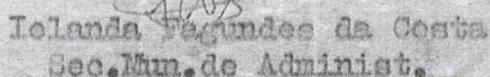 Iolanda Fagundes da Costa
Sec.Mun.de Administ.